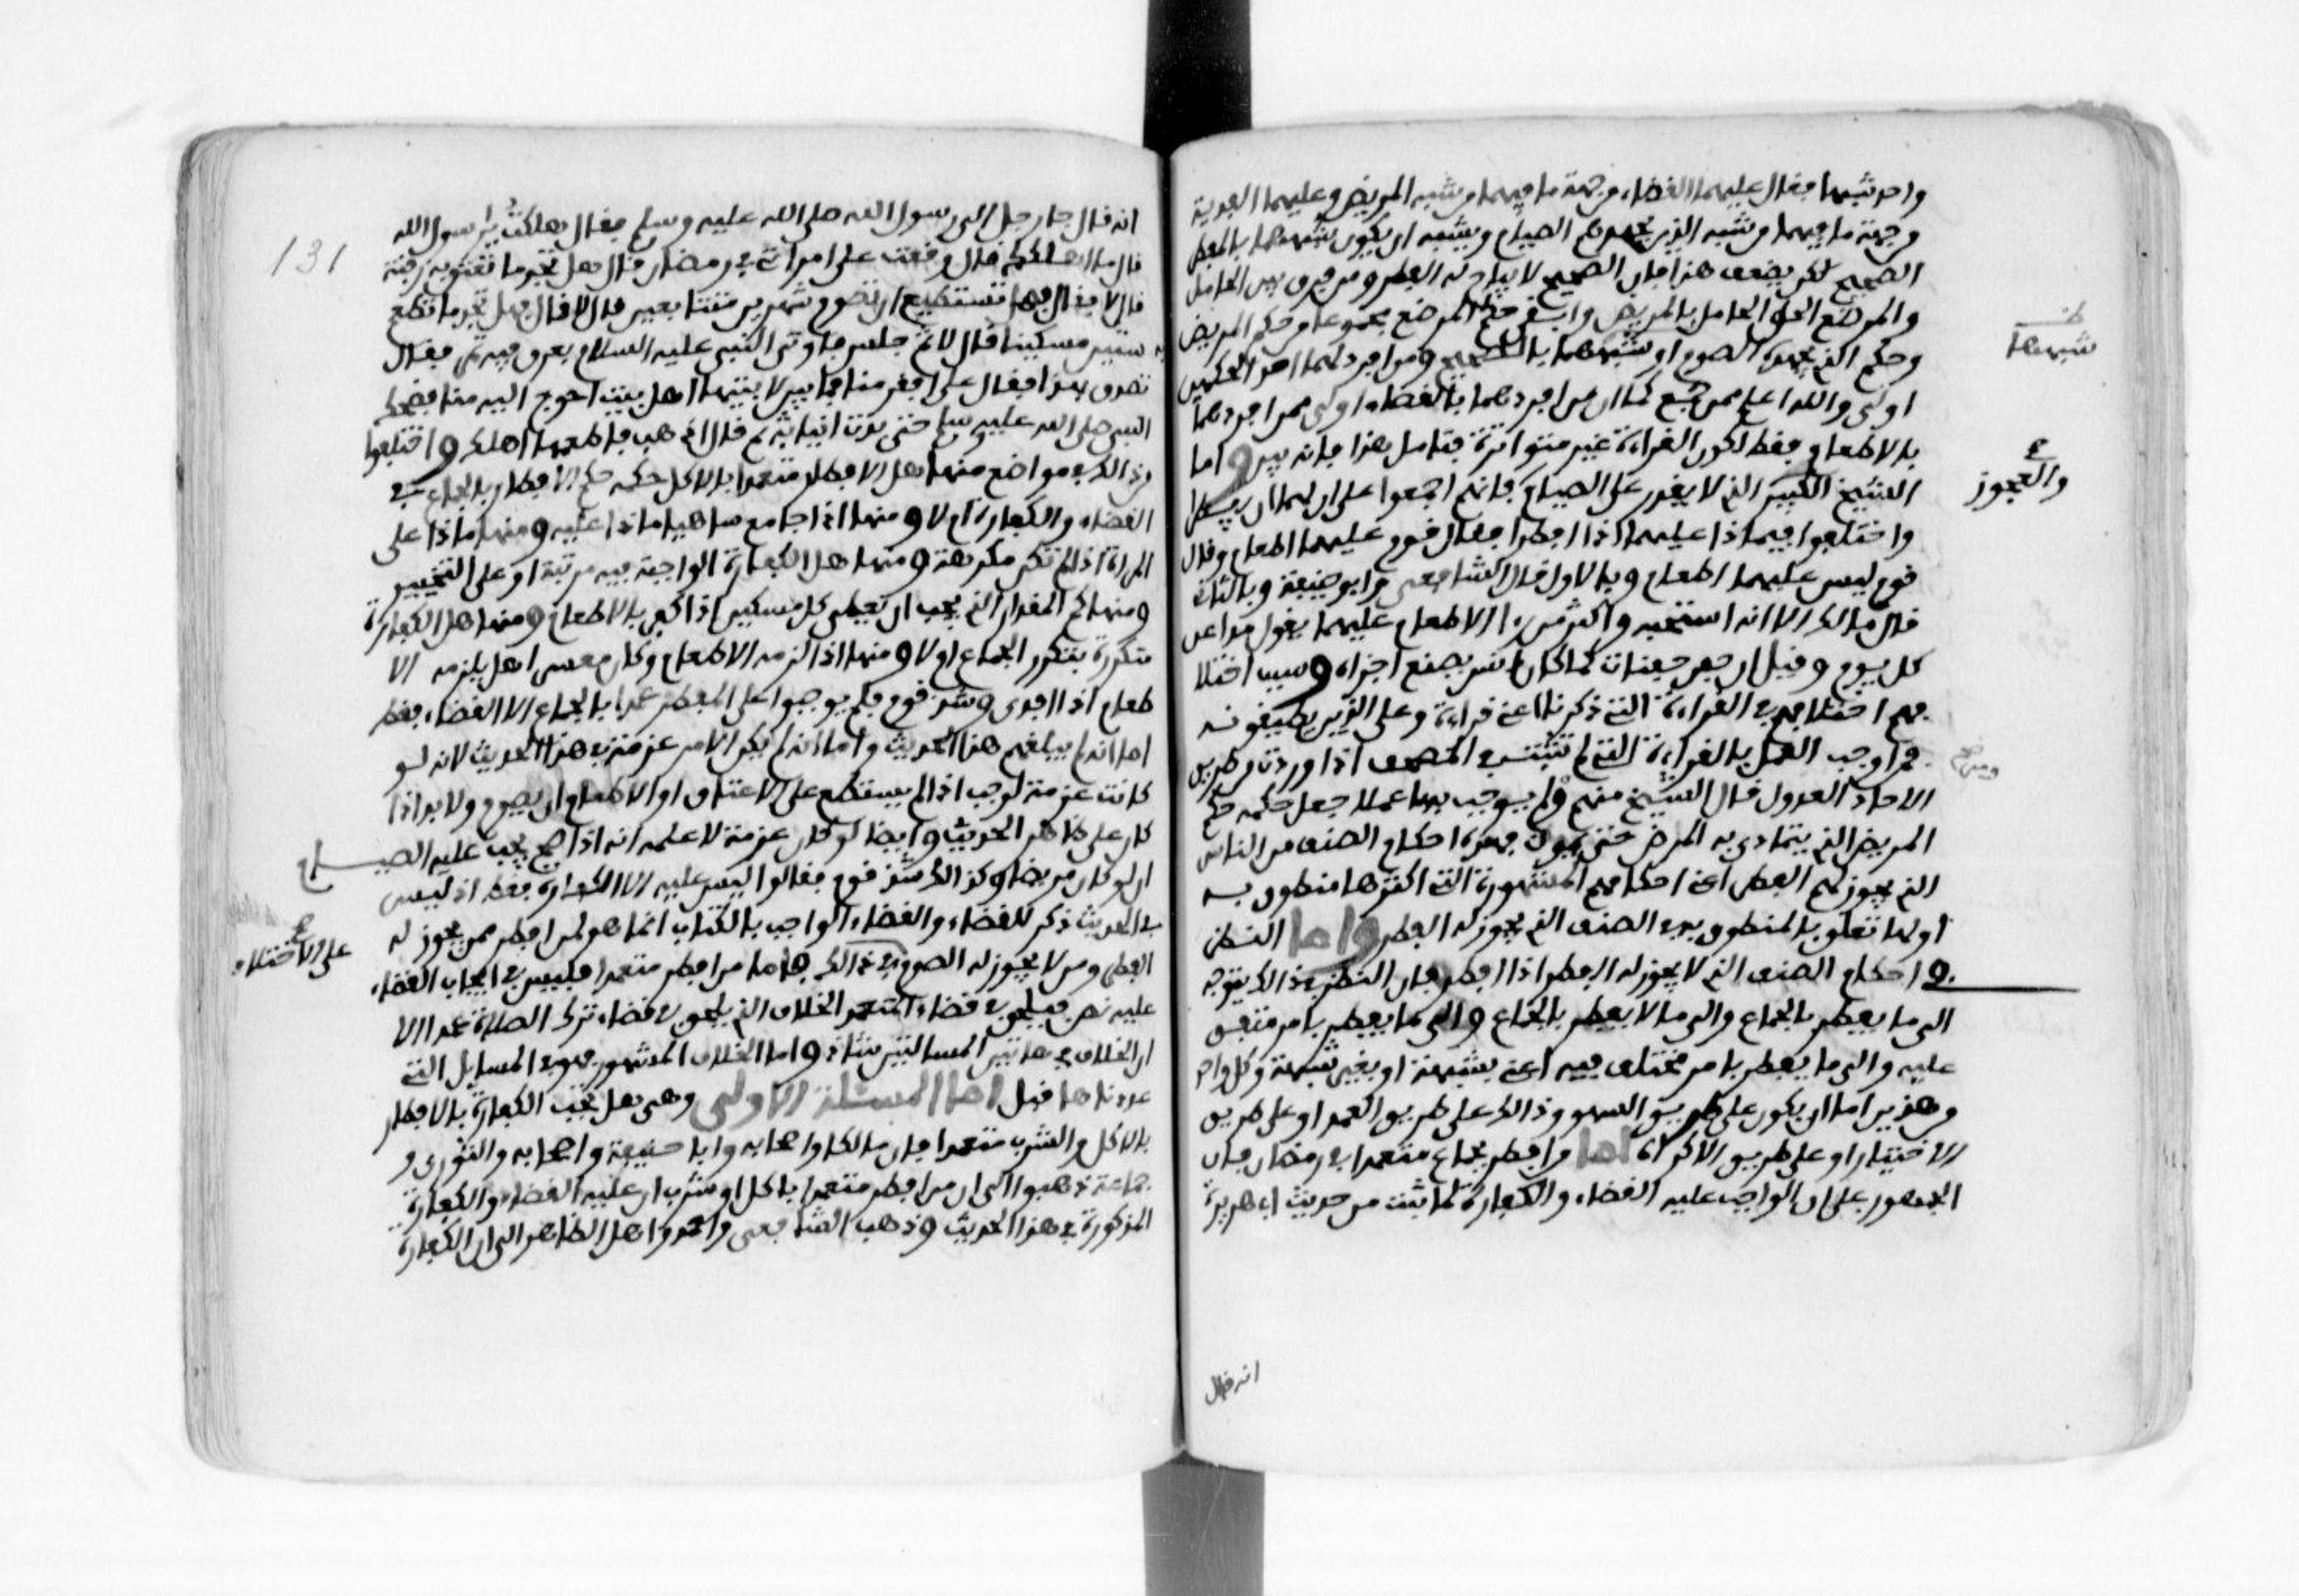 واحد شبها فقال عليهما القضاء من جهة ما فيهما من شبه المريض وعليهما الفدية
من جهة ما فيهما من شبه الذين يجهدهم الصيام ويشبه ان يكون شبههما بالمفطر
الصحيح لكن يضعف هذا فان الصحيح لا يباح له الفطر ومن فرق بين الحامل
والمرضع الحق الحامل بالمريض وابقى حكم المرضع مجموعا من حكم المريض
وحكم الذي يجهده الصوم او شبههما بالصحيح ومن افرد لهما احد الحكمين
اولى والله اعلم ممن جمع كما ان من افردهما بالقضاء اولى ممن افردهما
بالاطعام فقط لكون القراءة غير متواترة فتامل هذا فانه بين واما
الشيخ الكبير الذي لا يقدر على الصيام فانهم اجمعوا على ان لهما ان يفطرا
واختلفوا فيما ذا عليهما اذا افطرا فقال قوم عليهما اطعام وقال
قوم ليس عليهما اطعام وبالاول قال الشافعي وابو حنيفة وبالثاني
قال مالك الا انه استحبه واكثر من را الاطعام عليهما يقول مد عن
كل يوم وقيل ان حفن حفنات كما كان انس يصنع اجزاه وسبب اختلا
فهم اختلافهم في القراءة التي ذكرنا اعني قراءة وعلى الذين يطيقونه
فمن اوجب العمل بالقراءة التي لم تثبت في المصحف اذا وردت من طريق
الاحاد العدول قال الشيخ منهم ومن لم يوجب بها عملا جعل حكمه حكم
المريض الذي يتمادى به المرض حتى يموت فهذه احكام الصنف من الناس
الذي يجوز لهم الفطر اعني احكامهم المشهورة التي اكثرها منطوق به
او لها تعلق بالمنطوق به في الصنف الذي يجوز له الفطر واما النظر
في احكام الصنف الذي لا يجوز له الفطر اذا افطر فان النظر في ذلك يتوجه
الى ما يفطر بالجماع والى ما لا يفطر بالجماع والى ما يفطر بامر متفق
عليه والى ما يفطر بامر مختلف فيه اعني بشبهة او بغير شبهة وكل واحد
من هذين اما ان يكون على طريق السهو وذالك على طريق العمد او على طريق
الاختيار او على طريق الاكراه اما من افطر بجماع متعمدا في رمضان فان
الجمهور على ان الواجب عليه القضاء والكفارة لما ثبت من حديث ابي هريرة
ظ
شبههما
ع
والعجوز
انه قال
131
انه قال جا رجل الى رسول الله صلى الله عليه وسلم فقال هلكت يا رسول الله
قال ما اهلكك قال وقعت على امراتي في رمضان قال هل تجد ما تعتق به رقبة
قال لا قال فهل تستطيع ان تصوم شهرين متتابعين قال لا قال فهل تجد ما تطعم
به ستين مسكينا قال لا ثم جلس فاوتي النبي عليه السلام بعرق فيه تمر فقال
تصدق بهذا فقال على افقر منا فما بين لابتيها اهل بيت احوج اليه منا فضحك
النبي صلى الله عليه وسلم حتى بدت انيابه ثم قال اذهب فاطعمه اهلك واختلفوا
من ذالك في مواضع منها هل الافطار متعمدا بالاكل حكمه حكم الافطار بالجماع في
القضاء والكفارة ام لا ومنها اذا جامع ساهيا ماذا عليه ومنها ماذا على
المراة اذا لم تكن مكرهة ومنها هل الكفارة الواجبة فيه مرتبة او على التخيير
ومنها كم المقدار الذي يجب ان يعطى كل مسكين اذا كفر بالاطعام ومنها هل الكفارة
متكررة بتكرر الجماع او لا ومنها اذا لزمه الاطعام وكان معسرا هل يلزمه الا
طعام اذا اثرى وشذ قوم فلم يوجبوا على المفطر عمدا بالجماع الا القضاء فقط
اما انه لم يبلغهم هذا الحديث واما انه لم يكن الامر عزمة في هذا الحديث لانه لو
كانت عزمة لوجب اذا لم يستطع على الاعتاق او الاطعام ان يصوم ولا بد اذا
كان على ظاهر الحديث وايضا لو كان عزمة لاعلمه انه اذا صح يجب عليه الصيام
ان لو كان مريضا وكذالك شذ قوم فقالوا ليس عليه الا الكفارة فقط اذ ليس
في الحديث ذكر للقضاء والقضاء الواجب بالكتاب انما هو لمن افطر ممن يجوز له
الفطر ومن لا يجوز له الصوم في ذالك فاما من افطر متعمدا فليس في ايجاب القضاء
عليه نص فيلحق في قضاء المتعمد الخلاف الذي يلحق في قضاء تارك الصلاة عمدا الا
ان الخلاف في هاتين المسالتين شاذ واما الخلاف المشهور فهو في المسايل التي
عددناها قبل اما المسئلة الاولى وهي هل تجب الكفارة بالافطار
بالاكل والشرب متعمدا فان مالكا واصحابه وابا حنيفة واصحابه والثوري و
جماعة ذهبوا الى ان من افطر متعمدا باكل او شرب ان عليه القضاء والكفارة
المذكورة في هذا الحديث وذهب الشافعي واحمد واهل الظاهر الى ان الكفارة
ع
على الاختلاف